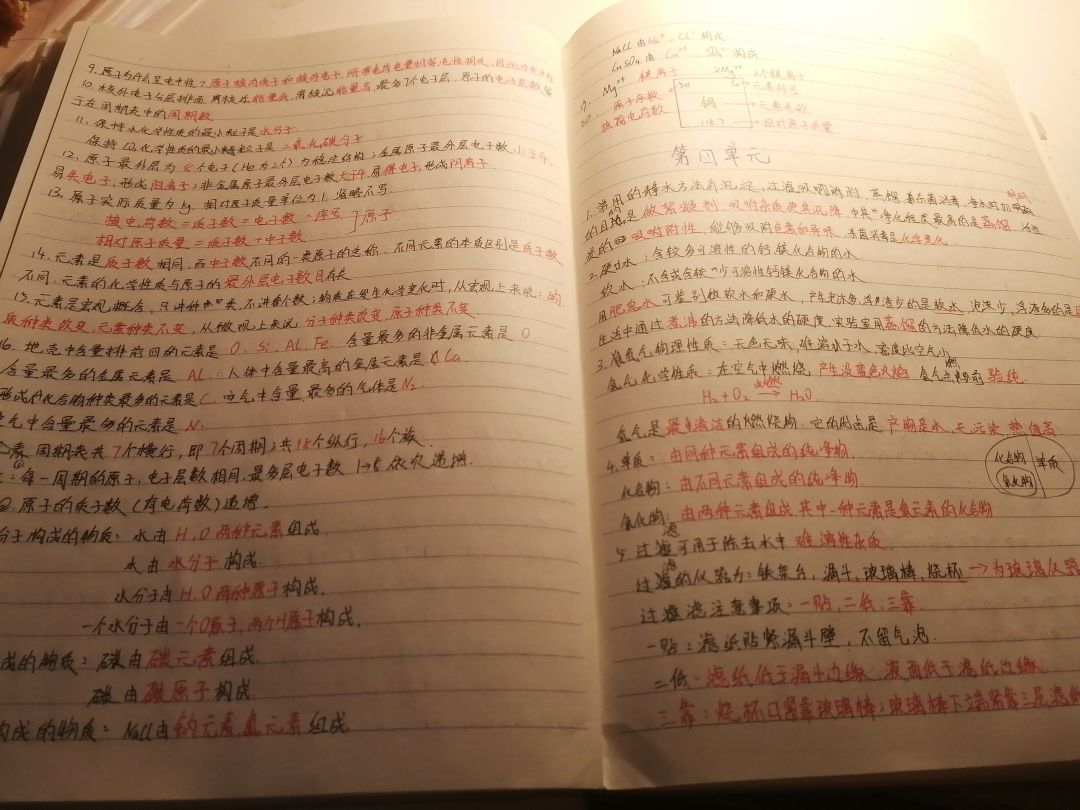 9. 原子为什么呈电中性？原子核内质子和核外电子，所带电荷电量相等，电性相反，因此
10. 核外电子分层排布，离核近能量低，离核远能量高，最多7个电子层，原子的电子层数等
于在周期表中的周期数
11. 保持水化学性质的最小粒子是水分子.
保持CO₂化学性质的最小粒子是二氧化碳分子
12. 原子最外层为8个电子(He为2个)为稳定结构；金属原子最外层电子数小于4，
易失电子，形成阳离子；非金属原子最外层电子数大于4，易得电子，形成阴离子.
13. 原子实际质量为kg，相对原子质量单位为1，省略不写.
核电荷数=质子数=电子数=序号
相对原子质量=质子数+中子数 原子.
14. 元素是质子数相同，而中子数不同的一类原子的总称，不同元素的本质区别是质子数
不同，元素的化学性质与原子的最外层电子数目有关
15. 元素是宏观概念，只讲种类，不讲个数；物质在发生化学变化时，从宏观上来说：物
质种类改变，元素种类不变，从微观上来说，分子种类改变，原子种类不变
16. 地壳中含量排前四的元素是 O. Si. Al. Fe 含量最多的非金属元素是 O
含量最多的金属元素是 Al. 人体中含量最高的金属元素是 Ca
形成化合物种类最多的元素是C. 空气中含量最多的气体是N₂
空气中含量最多的元素是N.
素周期表共7个横行，即7个周期；共18个纵行，16个族.
每一周期的原子，电子层数相同，最外层电子数1→8依次递增.
②原子的质子数(核电荷数)递增.
分子构成的物质：水由H.O两种元素组成.
水由水分子构成.
水分子由H.O两种原子构成.
一个水分子由一个O原子，两个H原子构成.
成的物质：碳由碳元素组成.
碳由碳原子构成.
构成的物质：NaCl由钠元素氯元素组成
NaCl由Na⁺、Cl⁻构成
CuSO₄由Cu²⁺、SO₄²⁻构成
19. Mg²⁺ 镁离子 2Mg²⁺ 2个镁离子
20. 原子序数 50 → 元素符号
核电荷数 锡 → 元素名称
118.7 → 相对原子质量
第四单元
1. 常用的静水方法有沉淀，过滤，吸附，蒸馏
的目的是做絮凝剂，吸附杂质使其沉降，其中净化程度最高的是蒸馏，活性
炭的吸附性，能够吸附色素和异味，杀菌消毒是化学变化
2. 硬水：含较多可溶性的钙镁化合物的水
软水：不含或含较少可溶性钙镁化合物的水
用肥皂水可鉴别软水和硬水，产生泡沫多，浮渣少的是软水，泡沫少，浮渣多的是
生活中通过煮沸的方法降低水的硬度，实验室用蒸馏的方法降低水的硬度
3. 氢气物理性质：无色无味，难溶于水，密度比空气小
氢气化学性质：在空气中燃烧，产生淡蓝色火焰，氢气点燃前验纯.
H₂+O₂ 点燃→ H₂O.
氢气是最清洁的燃烧物，它的优点是产物是水，无污染，热值高
4. 单质：由同种元素组成的纯净物.
化合物：由不同元素组成的纯净物
氧化物：由两种元素组成，其中一种元素是氧元素的化合物
化合物 单质
氧化物
5. 过滤可用于除去水中难溶性杂质.
过滤的仪器为：铁架台，漏斗，玻璃棒，烧杯 → 为玻璃仪器
过滤注意事项：一贴，二低，三靠.
一贴：滤纸贴紧漏斗壁，不留气泡.
二低：滤纸低于漏斗边缘，液面低于滤纸边缘
三靠：烧杯口紧靠玻璃棒；玻璃棒下端紧靠三层滤纸